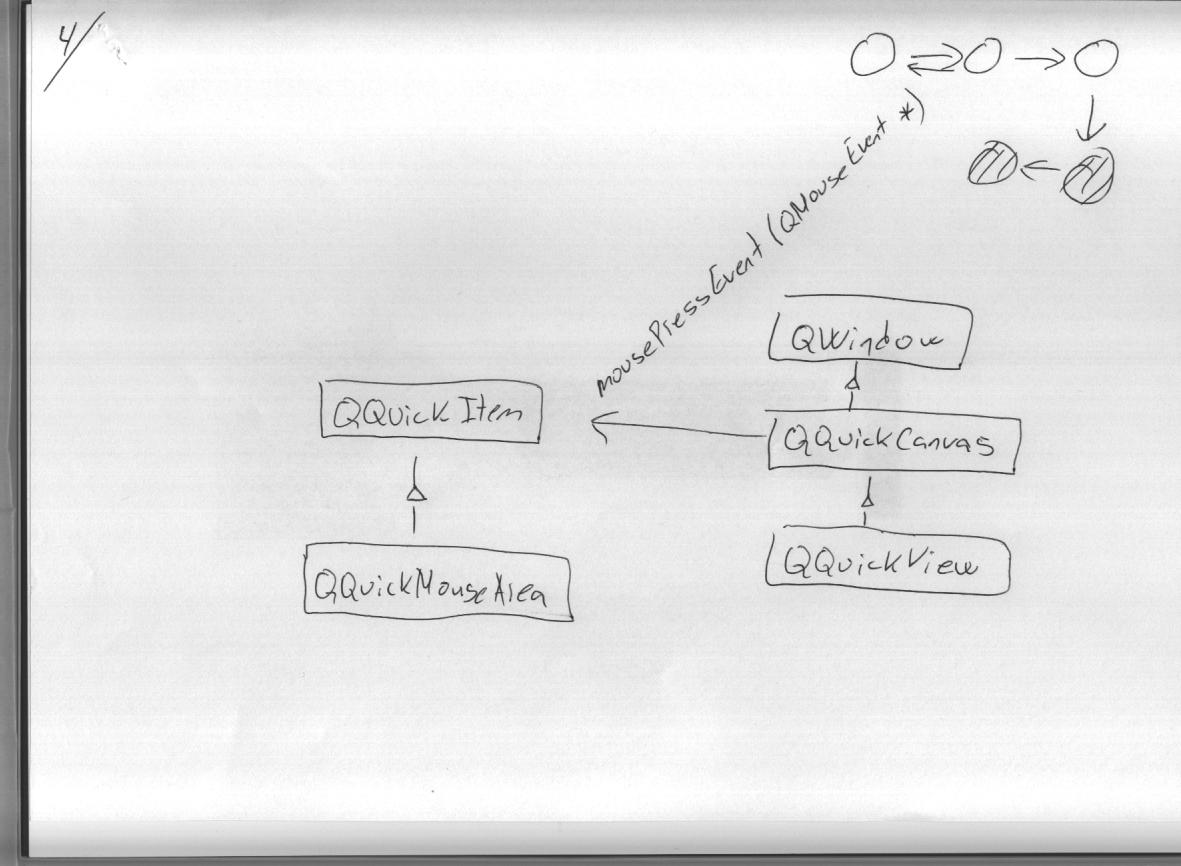 4/
mousePressEvent (QMouseEvent *)
QWindow
QQuickItem
QQuickCanvas
QQuickMouseArea
QQuickView